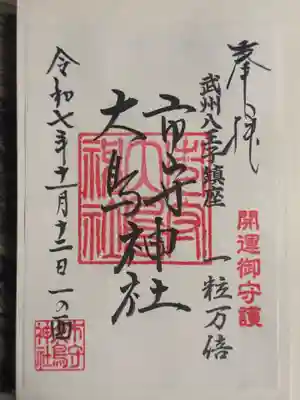 奉拝
武州八王子鎮座
開運御守護
一粒万倍
市守神社
大鳥神社
令和七年十一月十二日 一の酉